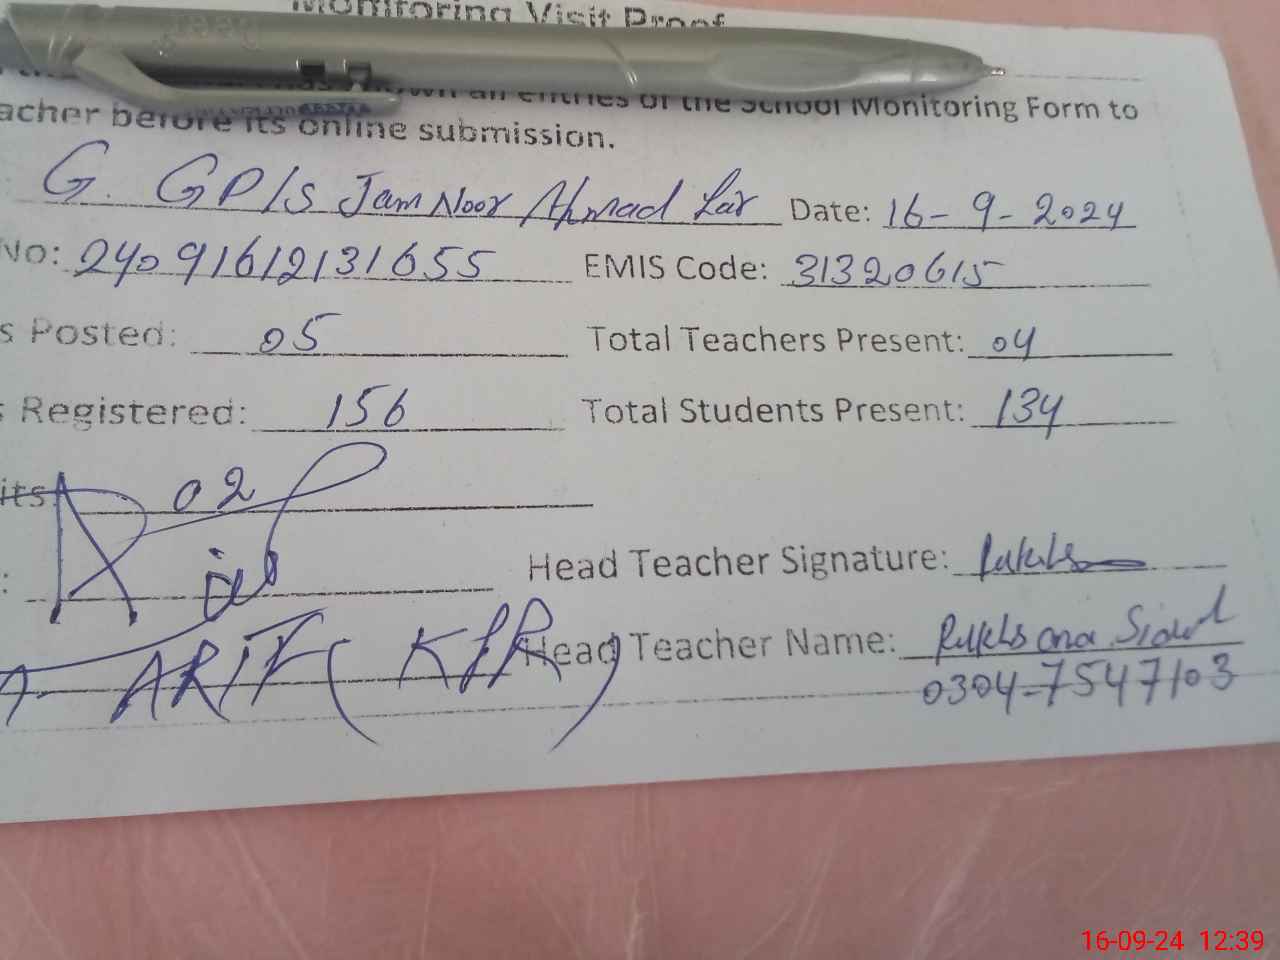 Monitoring Visit Proof
own all entries of the School Monitoring Form to
acher before its online submission.
G. GP/S Jam Noor Ahmad Lar Date: 16-9-2024
No: 24091612131655 EMIS Code: 31320615
s Posted: 05 Total Teachers Present: 04
s Registered: 156 Total Students Present: 134
its 02
: Head Teacher Signature:
A- ARIF ( KPR ) Head Teacher Name: Rukhsana
0304-7547103
16-09-24 12:39